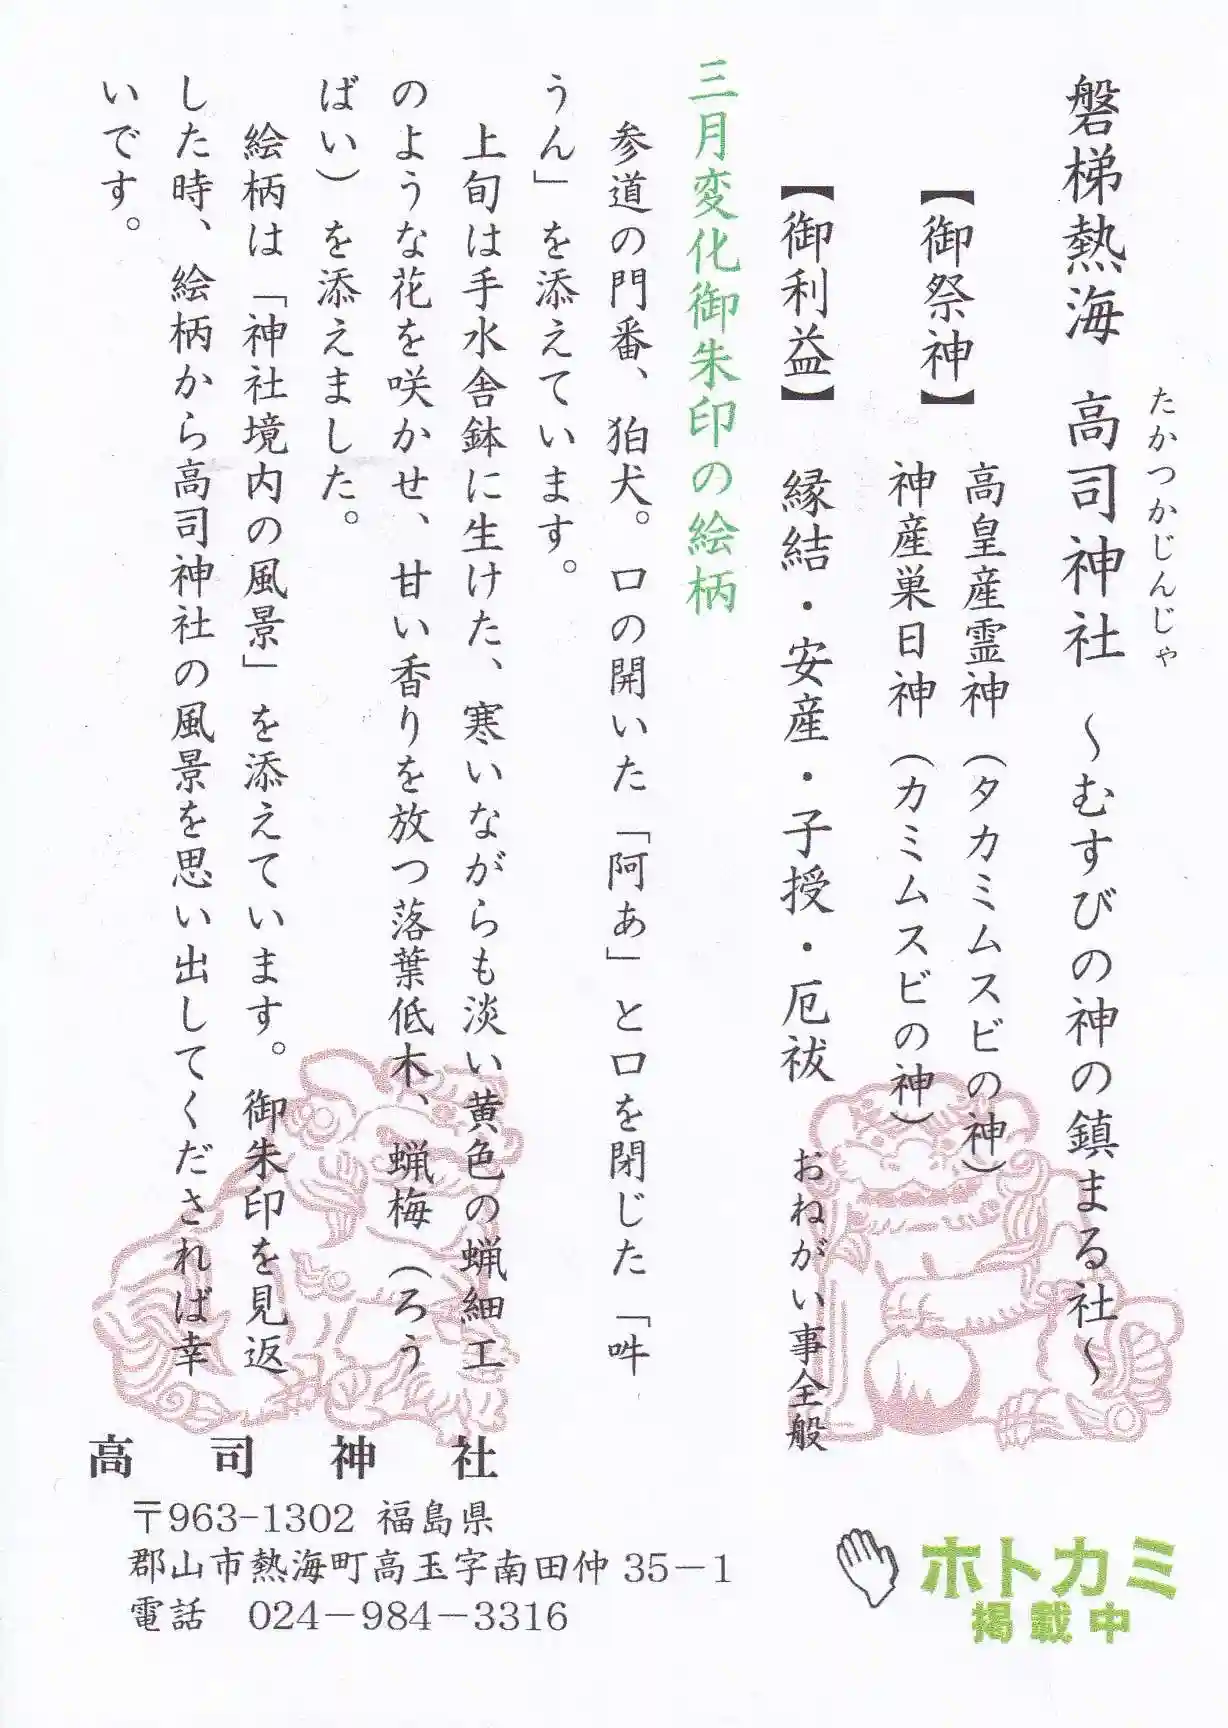 たかつかじんじゃ
磐梯熱海 高司神社 ～むすびの神の鎮まる社～
【御祭神】 高皇産霊神（タカミムスビの神）
神産巣日神（カミムスビの神）
【御利益】 縁結・安産・子授・厄祓 おねがい事全般
三月変化御朱印の絵柄
参道の門番、狛犬。口の開いた「阿あ」と口を閉じた「吽
うん」を添えています。
上旬は手水舎鉢に生けた、寒いながらも淡い黄色の蝋細工
のような花を咲かせ、甘い香りを放つ落葉低木、蝋梅（ろう
ばい）を添えました。
絵柄は「神社境内の風景」を添えています。御朱印を見返
した時、絵柄から高司神社の風景を思い出してくだされば幸
いです。
高司神社
〒963-1302 福島県
郡山市熱海町高玉字南田仲35－1
電話 024－984－3316
ホトカミ
掲載中